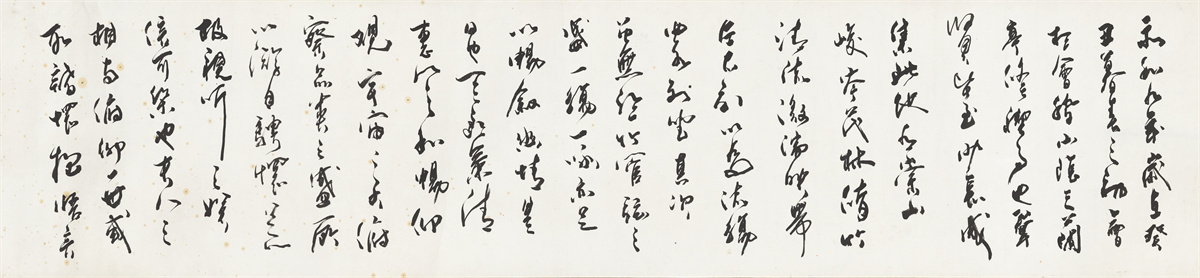 永和九年歲在癸
丑暮春之初會
於會稽山陰之蘭
亭修禊事也群
賢畢至少長咸
集此地有崇山
峻嶺茂林脩竹
清流激湍映帶
左右引以為流觴
曲水列坐其次
雖無絲竹管弦之
盛一觴一詠亦足
以暢敘幽情是
日也天朗氣清
惠風和暢仰
觀宇宙之大俯
察品類之盛所
以游目騁懷足以
極視聽之娛
信可樂也夫人之
相與俯仰一世或
取諸懷抱悟言